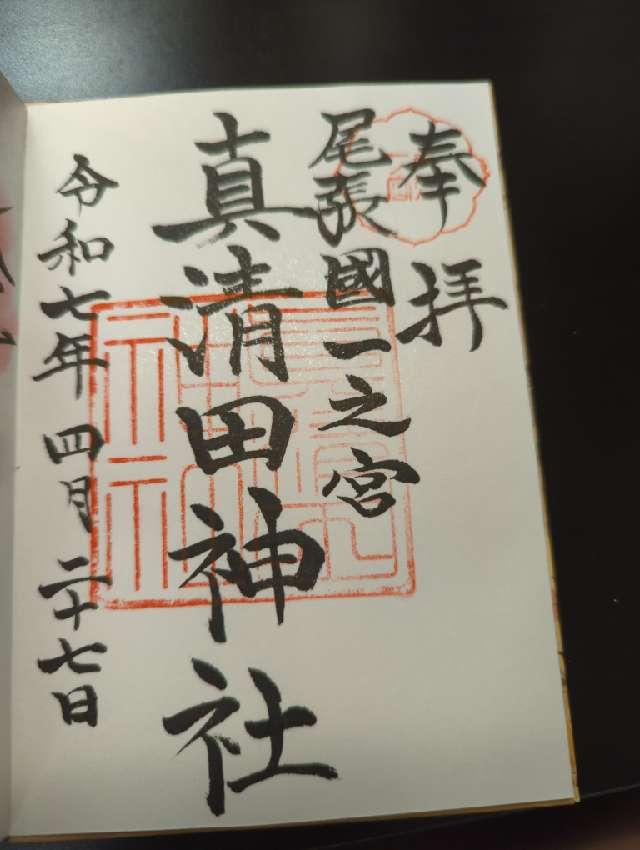 奉拝
尾張國一之宮
真清田神社
令和七年四月二十七日